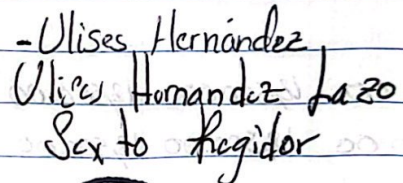 -Ulises Hernández
Ulises Hernandez Lazo
Sexto Regidor